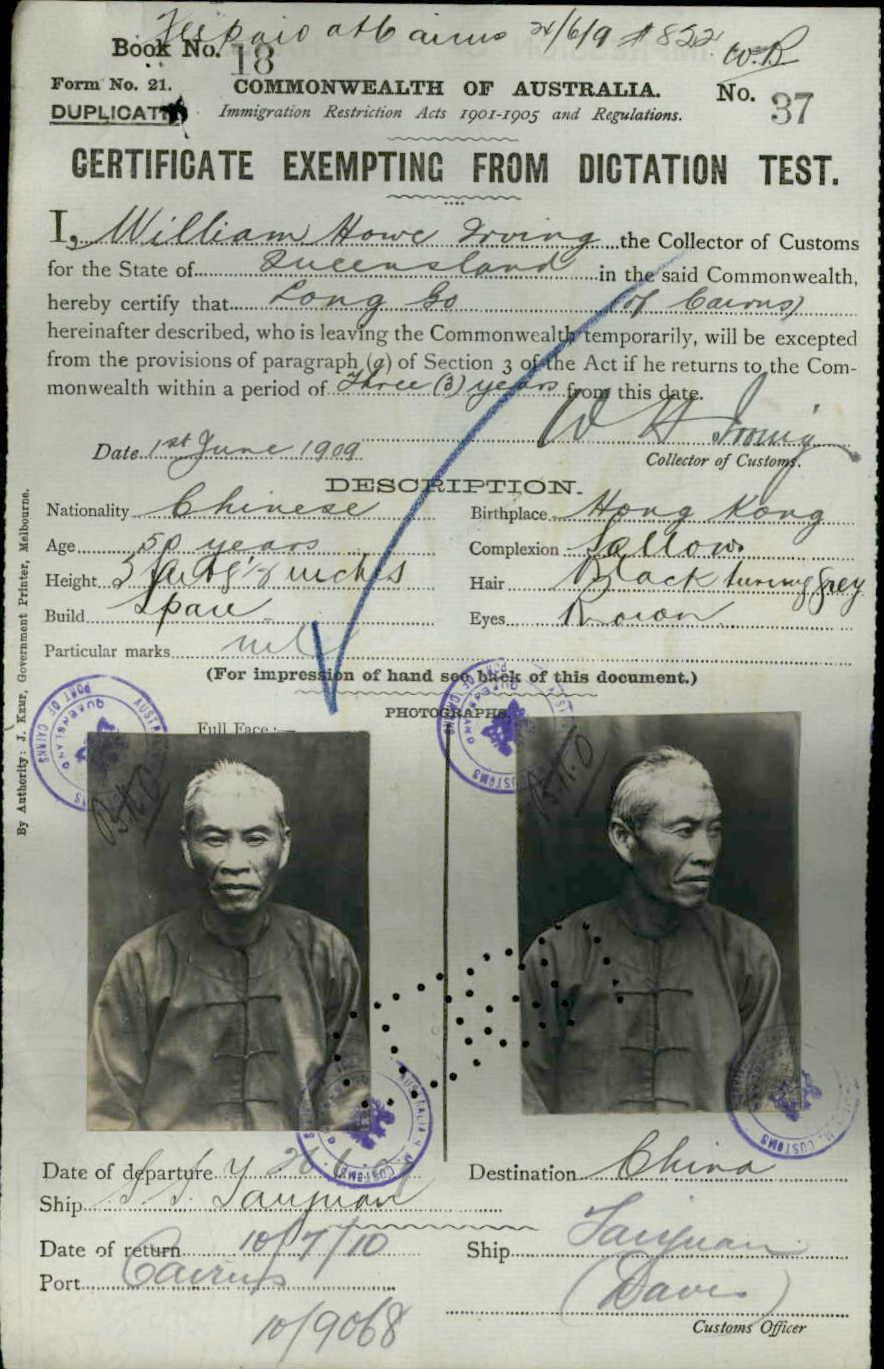 Fee paid at Cairns 2/6/9 # 822 W.R
Book No. 18
Form No. 21. COMMONWEALTH OF AUSTRALIA. No. 37
DUPLICATE Immigration Restriction Acts 1901-1905 and Regulations.
CERTIFICATE EXEMPTING FROM DICTATION TEST.
I, William Howe Irving the Collector of Customs
for the State of Queensland in the said Commonwealth,
hereby certify that Long Go (of Cairns)
hereinafter described, who is leaving the Commonwealth temporarily, will be excepted
from the provisions of paragraph (a) of Section 3 of the Act if he returns to the Com-
monwealth within a period of Three (3) years from this date.
W H Irving
Date 1st June 1909
Collector of Customs.
DESCRIPTION.
Nationality Chinese Birthplace Hong Kong
Age 50 years Complexion Sallow
Height 5 feet 6 1/2 inches Hair Black turning grey
Build Spare Eyes Brown
Particular marks nil
(For impression of hand see back of this document.)
PHOTOGRAPHS.
Full Face:—
By Authority: J. Kemp, Government Printer, Melbourne.
PORT OF CAIRNS QUEENSLAND
AUSTRALIA
H.M. CUSTOMS
Date of departure Destination China
Ship S.S. Taiyuan
Date of return 10/7/10 Ship Taiyuan
Port Cairns (Davis)
Customs Officer
10/9068